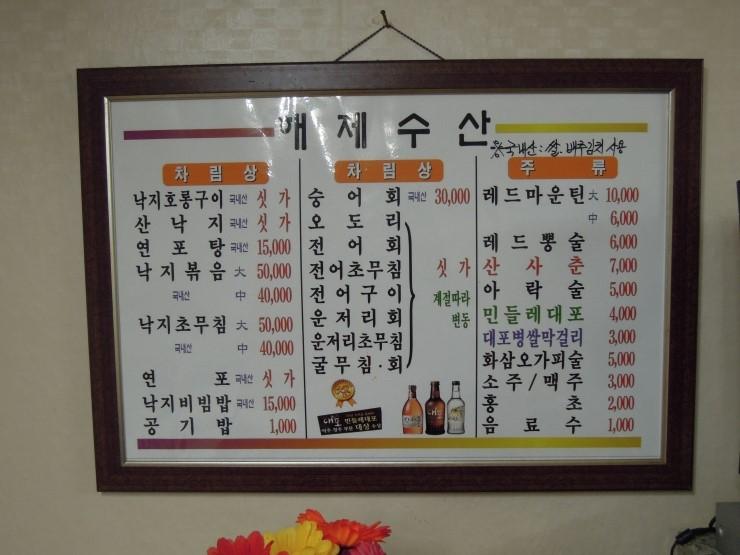 애제수산
※국내산: 쌀. 배추김치 사용
차림상
낙지호롱구이 국내산 싯가
산낙지 국내산 싯가
연포탕 국내산 15,000
낙지볶음 大 50,000
국내산 中 40,000
낙지초무침 大 50,000
국내산 中 40,000
연포 국내산 싯가
낙지비빔밥 국내산 15,000
공기밥 1,000
차림상
숭어회 국내산 30,000
오도리
전어회
전어초무침
전어구이
운저리회
운저리초무침
굴무침·회
싯가
계절따라
변동
대포 민들레대포
대상
주류
레드마운틴 大 10,000
中 6,000
레드뽕술 6,000
산사춘 7,000
아락술 5,000
민들레대포 4,000
대포병쌀막걸리 3,000
화삼오가피술 5,000
소주/맥주 3,000
홍초 2,000
음료수 1,000